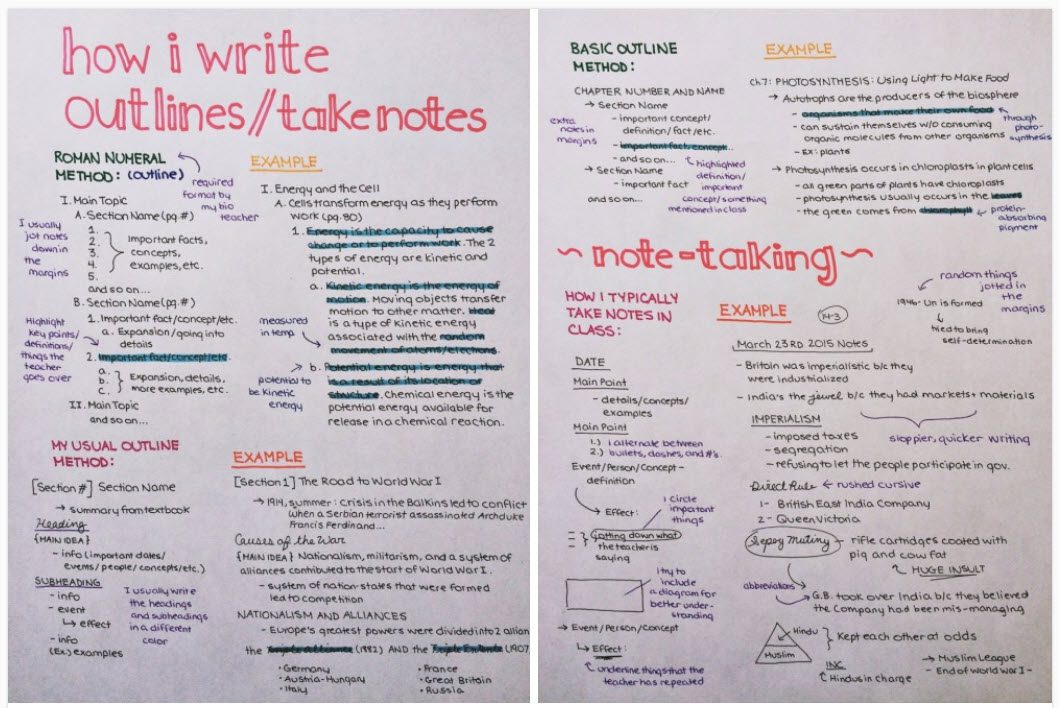 how i write
outlines//take notes
ROMAN NUMERAL
METHOD: (outline)
required
format by
my bio
teacher
I. Main Topic
A. Section Name (pg. #)
1.
2.
3.
4.
5.
Important facts,
concepts,
examples, etc.
and so on...
I usually
jot notes
down in
the
margins
B. Section Name (pg. #)
1. Important fact/concept/etc.
a. Expansion/going into
details
2. Important fact/concept/etc
a.
b.
c.
Expansion, details,
more examples, etc.
II. Main Topic
and so on...
Highlight
key points/
definitions/
things the
teacher
goes over
EXAMPLE
I. Energy and the Cell
A. Cells transform energy as they perform
work (pg. 80)
1. Energy is the capacity to cause
change or to perform work. The 2
types of energy are kinetic and
potential.
a. Kinetic energy is the energy of
motion. Moving objects transfer
motion to other matter. Heat
is a type of kinetic energy
associated with the random
movement of atoms/electrons.
b. Potential energy is energy that
is a result of its location or
structure. Chemical energy is the
potential energy available for
release in a chemical reaction.
measured
in temp
potential to
be kinetic
energy
MY USUAL OUTLINE
METHOD:
[Section #] Section Name
→ summary from textbook
Heading
{MAIN IDEA}
- info (important dates/
events/people/concepts/etc.)
SUBHEADING
- info
- event
↳ effect
- info
(Ex) examples
I usually write
the headings
and subheadings
in a different
color
EXAMPLE
[Section 1] The Road to World War I
→ 1914, summer: crisis in the Balkins led to conflict
when a Serbian terrorist assassinated Archduke
Francis Ferdinand...
Causes of the War
{MAIN IDEA} Nationalism, militarism, and a system of
alliances contributed to the start of World War I.
- system of nation-states that were formed
led to competition
NATIONALISM AND ALLIANCES
- Europe's greatest powers were divided into 2 allian
the Triple Alliance (1882) AND the Triple Entente (1907
• Germany
• Austria-Hungary
• Italy
• France
• Great Britain
• Russia
BASIC OUTLINE
METHOD:
CHAPTER NUMBER AND NAME
→ Section Name
- important concept/
definition/fact/etc.
- important fact, concept...
- and so on...
→ Section Name
- important fact
and so on...
extra
notes in
margins
highlighted
definition/
important
concept/something
mentioned in class
EXAMPLE
Ch 7: PHOTOSYNTHESIS: Using Light to Make Food
→ Autotrophs are the producers of the biosphere
- organisms that make their own food
- can sustain themselves w/o consuming
organic molecules from other organisms
- Ex: plants
through
photo-
synthesis
→ Photosynthesis occurs in chloroplasts in plant cells
- all green parts of plants have chloroplasts
- photosynthesis usually occurs in the leaves
- the green comes from chlorophyll
protein-
absorbing
pigment
~ note-taking ~
HOW I TYPICALLY
TAKE NOTES IN
CLASS:
DATE
Main Point
- details/concepts/
examples
Main Point
1.) i alternate between
2.) bullets, dashes, and #'s.
Event/Person/Concept -
definition
→ Effect:
i circle
important
things
Jotting down what
the teacher is
saying
I try to
include
a diagram for
better under-
standing
→ Event/Person/Concept
↳ Effect:
underline things that the
teacher has repeated
EXAMPLE
14-3
random things
jotted in
the
margins
1946 - Un is formed
↳ tried to bring
self-determination
March 23RD 2015 Notes
- Britain was imperialistic b/c they
were industrialized
- India's the jewel b/c they had markets + materials
sloppier, quicker writing
IMPERIALISM
- imposed taxes
- segregation
- refusing to let the people participate in gov.
Direct Rule
rushed cursive
1- British East India Company
2- Queen Victoria
Sepoy Mutiny - rifle cartridges coated with
pig and cow fat
HUGE INSULT
abbreviations
G.B. took over India b/c they believed
the Company had been mis-managing
Hindu
Muslim
Kept each other at odds
INC
Hindus in charge
→ Muslim League
- End of World War I -